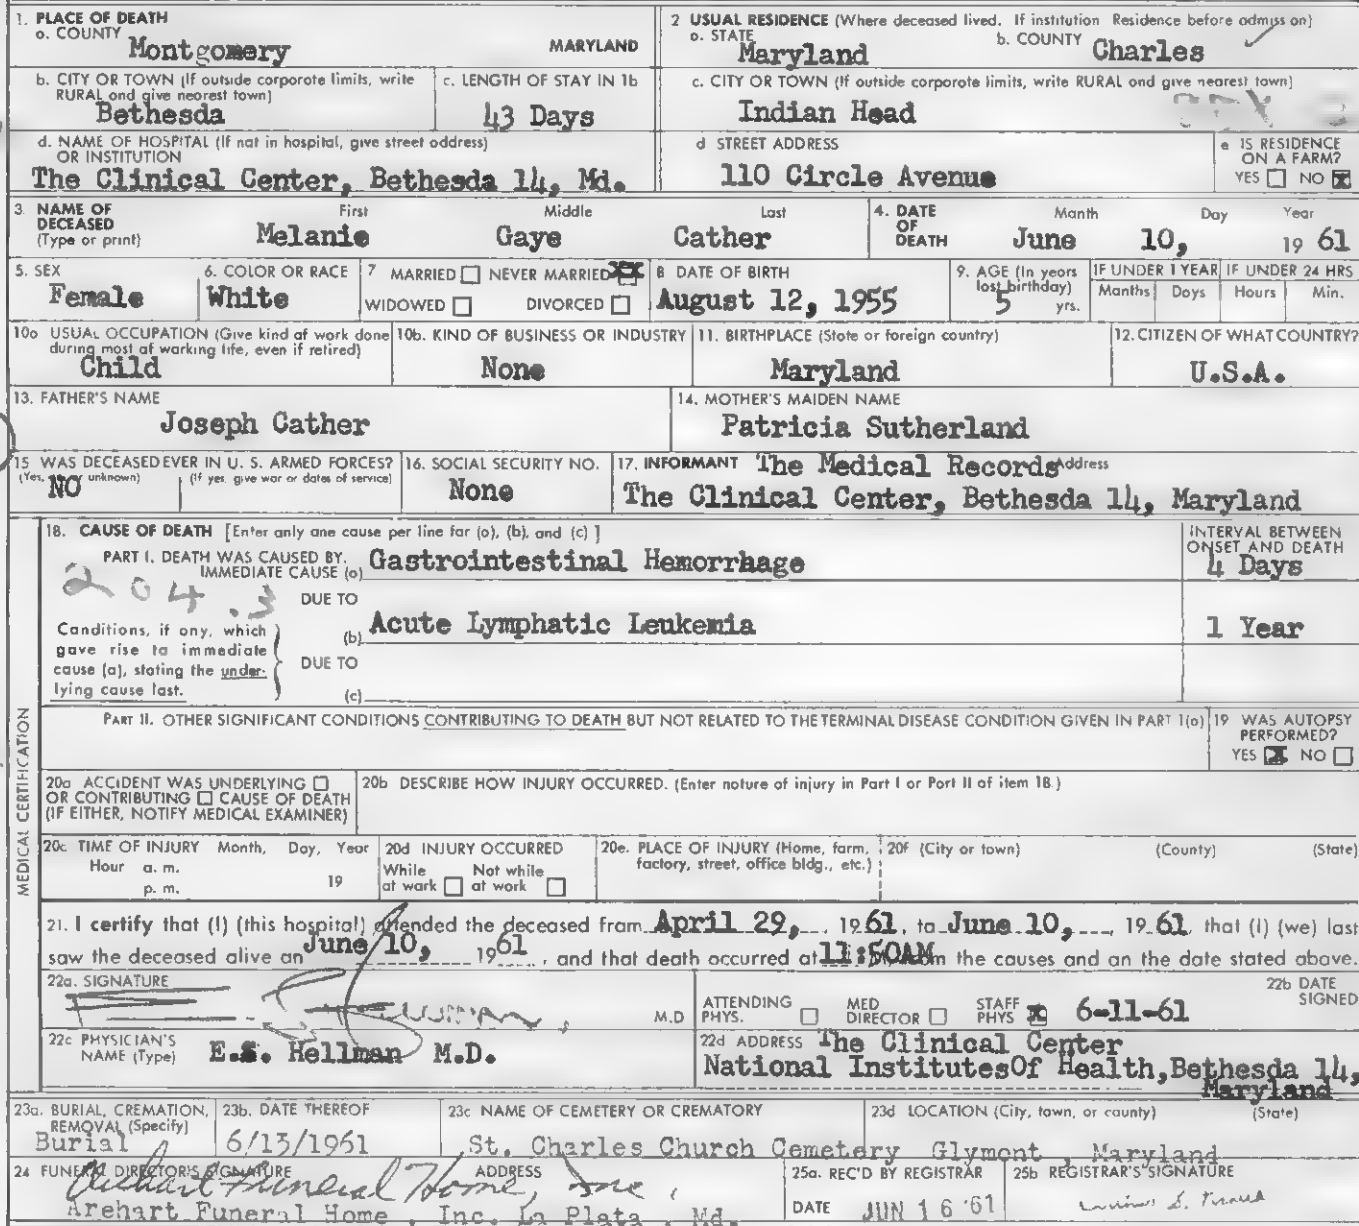 1. PLACE OF DEATH
a. COUNTY Montgomery MARYLAND
2 USUAL RESIDENCE (Where deceased lived. If institution Residence before admission)
a. STATE Maryland b. COUNTY Charles
b. CITY OR TOWN (If outside corporate limits, write RURAL and give nearest town) Bethesda
c. LENGTH OF STAY IN 1b 43 Days
c. CITY OR TOWN (If outside corporate limits, write RURAL and give nearest town) Indian Head
d. NAME OF HOSPITAL (If not in hospital, give street address) OR INSTITUTION
The Clinical Center, Bethesda 14, Md.
d STREET ADDRESS
110 Circle Avenue
e IS RESIDENCE ON A FARM?
YES NO X
3. NAME OF DECEASED (Type or print)
First Middle Last
Melanie Gaye Cather
4. DATE OF DEATH
Month Day Year
June 10, 19 61
5. SEX Female
6. COLOR OR RACE White
7 MARRIED NEVER MARRIED XX
WIDOWED DIVORCED
8 DATE OF BIRTH August 12, 1955
9. AGE (In years last birthday) 5 yrs.
IF UNDER 1 YEAR Months Days
IF UNDER 24 HRS Hours Min.
10a USUAL OCCUPATION (Give kind of work done during most of working life, even if retired) Child
10b. KIND OF BUSINESS OR INDUSTRY None
11. BIRTHPLACE (State or foreign country) Maryland
12. CITIZEN OF WHAT COUNTRY? U.S.A.
13. FATHER'S NAME Joseph Cather
14. MOTHER'S MAIDEN NAME Patricia Sutherland
15 WAS DECEASED EVER IN U. S. ARMED FORCES?
(Yes, NO unknown) (If yes, give war or dates of service)
16. SOCIAL SECURITY NO. None
17. INFORMANT The Medical Records Address
The Clinical Center, Bethesda 14, Maryland
MEDICAL CERTIFICATION
18. CAUSE OF DEATH [Enter only one cause per line for (a), (b), and (c) ]
INTERVAL BETWEEN ONSET AND DEATH
PART I. DEATH WAS CAUSED BY.
IMMEDIATE CAUSE (a) Gastrointestinal Hemorrhage 4 Days
204.3
DUE TO
(b) Acute Lymphatic Leukemia 1 Year
Conditions, if any, which gave rise to immediate cause (a), stating the underlying cause last.
DUE TO
(c)
PART II. OTHER SIGNIFICANT CONDITIONS CONTRIBUTING TO DEATH BUT NOT RELATED TO THE TERMINAL DISEASE CONDITION GIVEN IN PART 1(a)
19 WAS AUTOPSY PERFORMED?
YES X NO
20a ACCIDENT WAS UNDERLYING
OR CONTRIBUTING CAUSE OF DEATH
(IF EITHER, NOTIFY MEDICAL EXAMINER)
20b DESCRIBE HOW INJURY OCCURRED. (Enter nature of injury in Part I or Part II of item 18.)
20c TIME OF INJURY Month, Day, Year
Hour a. m.
p. m. 19
20d INJURY OCCURRED
While at work Not while at work
20e. PLACE OF INJURY (Home, farm, factory, street, office bldg., etc.)
20f (City or town) (County) (State)
21. I certify that (I) (this hospital) attended the deceased from April 29, 1961, to June 10, 1961, that (I) (we) last
saw the deceased alive on June 10, 1961, and that death occurred at 11:50AM from the causes and on the date stated above.
22a. SIGNATURE M.D
ATTENDING PHYS. MED DIRECTOR STAFF PHYS X 6-11-61
22b DATE SIGNED
22c PHYSICIAN'S NAME (Type) E.S. Hellman M.D.
22d ADDRESS The Clinical Center
National Institutes Of Health, Bethesda 14,
Maryland
23a. BURIAL, CREMATION, REMOVAL (Specify) Burial
23b. DATE THEREOF 6/13/1961
23c NAME OF CEMETERY OR CREMATORY St. Charles Church Cemetery
23d LOCATION (City, town, or county) (State) Glymont, Maryland
24 FUNERAL DIRECTOR'S SIGNATURE ADDRESS
Arehart Funeral Home, Inc.
Arehart Funeral Home, Inc. La Plata, Md.
25a. REC'D BY REGISTRAR
DATE JUN 16 '61
25b REGISTRAR'S SIGNATURE